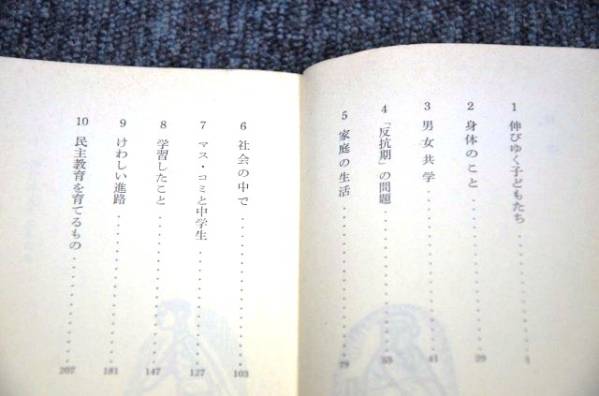 1 伸びゆく子どもたち 1
2 身体のこと 29
3 男女共学 41
4 「反抗期」の問題 55
5 家庭の生活 79
6 社会の中で 103
7 マス・コミと中学生 127
8 学習したこと 147
9 けわしい進路 181
10 民主教育を育てるもの 207